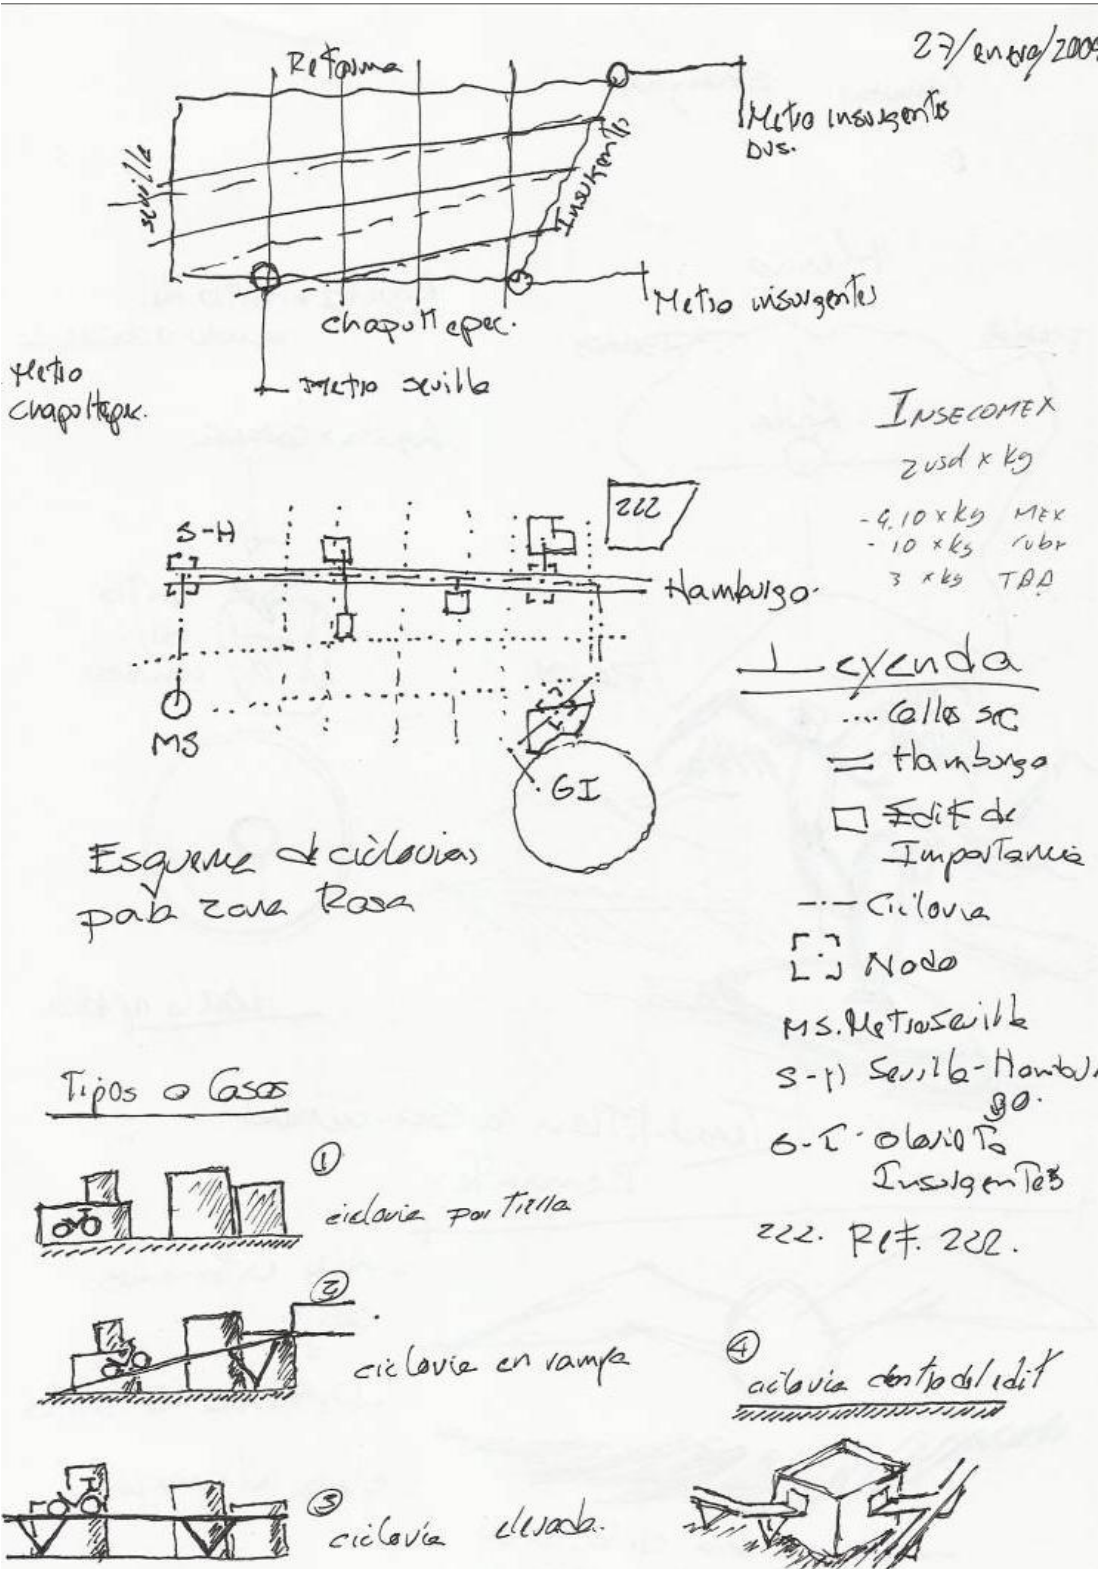 27/enero/2009
Reforma
Metro insurgentes
bus.
sevilla
Insurgentes
Metro insurgentes
chapultepec.
Metro sevilla
Metro
chapultepec.
INSECOMEX
2 usd x kg
x kg MEX
- 10 x kg
3 x kg
S-H
222
Hamburgo.
MS
GI
Esquema de ciclovias
para zona Rosa
Leyenda
.... Calles sec
Hamburgo
Edif de
Importancia
Ciclovia
Nodo
MS. Metro Sevilla
S-H Sevilla-Hambur
go.
G-I. Glorieta
Insurgentes
222. Ref. 222.
Tipos o Casos
1
ciclovia por tierra
2
ciclovia en rampa
3
ciclovia elevada.
4
ciclovia dentro del edif